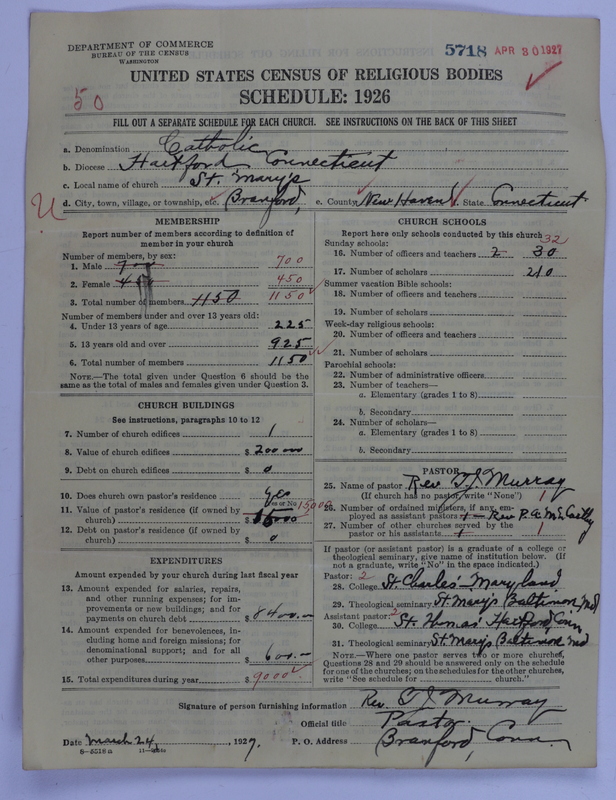 DEPARTMENT OF COMMERCE
BUREAU OF THE CENSUS
WASHINGTON
5718 APR 30 1927
UNITED STATES CENSUS OF RELIGIOUS BODIES
50
SCHEDULE: 1926
FILL OUT A SEPARATE SCHEDULE FOR EACH CHURCH. SEE INSTRUCTIONS ON THE BACK OF THIS SHEET
a. Denomination Catholic
b. Diocese Hartford Connecticut
c. Local name of church St. Mary's
d. City, town, village, or township, etc. Branford, e. County New Haven State Connecticut
U
MEMBERSHIP
Report number of members according to definition of
member in your church
Number of members, by sex:
1. Male 700 700
2. Female 450 450
3. Total number of members 1150 1150
Number of members under and over 13 years old:
4. Under 13 years of age 225
5. 13 years old and over 925
6. Total number of members 1150
NOTE.—The total given under Question 6 should be the
same as the total of males and females given under Question 3.
CHURCH BUILDINGS
See instructions, paragraphs 10 to 12
7. Number of church edifices 1
8. Value of church edifices $ 20000
9. Debt on church edifices $ 0
10. Does church own pastor's residence Yes
(Yes or No)
11. Value of pastor's residence (if owned by 15000
church) $
12. Debt on pastor's residence (if owned by
church) $ 0
EXPENDITURES
Amount expended by your church during last fiscal year
13. Amount expended for salaries, repairs,
and other running expenses; for im-
provements or new buildings; and for
payments on church debt $ 8400.—
14. Amount expended for benevolences, in-
cluding home and foreign missions; for
denominational support; and for all
other purposes $ 600.—
15. Total expenditures during year $ 9000
CHURCH SCHOOLS
Report here only schools conducted by this church
Sunday schools: 32
16. Number of officers and teachers 2 30
17. Number of scholars 210
Summer vacation Bible schools:
18. Number of officers and teachers
19. Number of scholars
Week-day religious schools:
20. Number of officers and teachers
21. Number of scholars
Parochial schools:
22. Number of administrative officers
23. Number of teachers—
a. Elementary (grades 1 to 8)
b. Secondary
24. Number of scholars—
a. Elementary (grades 1 to 8)
b. Secondary
PASTOR
25. Name of pastor Rev. T. J. Murray
(If church has no pastor, write "None") 1
26. Number of ordained ministers, if any, em-
ployed as assistant pastors 1 Rev P. A. McCarthy
27. Number of other churches served by the
pastor or his assistants 1
If pastor (or assistant pastor) is a graduate of a college or
theological seminary, give name of institution below. (If
not a graduate, write "No" in the space indicated.)
Pastor: 2
28. College St. Charles Maryland
29. Theological seminary St. Mary's Baltimore Md
Assistant pastor: 2
30. College St. Thomas' Hartford, Conn
31. Theological seminary St. Mary's Baltimore Md
NOTE.—Where one pastor serves two or more churches,
Questions 28 and 29 should be answered only on the schedule
for one of the churches; on the schedules for the other churches,
write "See schedule for church."
Signature of person furnishing information Rev. T. J. Murray
Official title Pastor
Date March 24, 1927. P. O. Address Branford, Conn.
8—5518 a